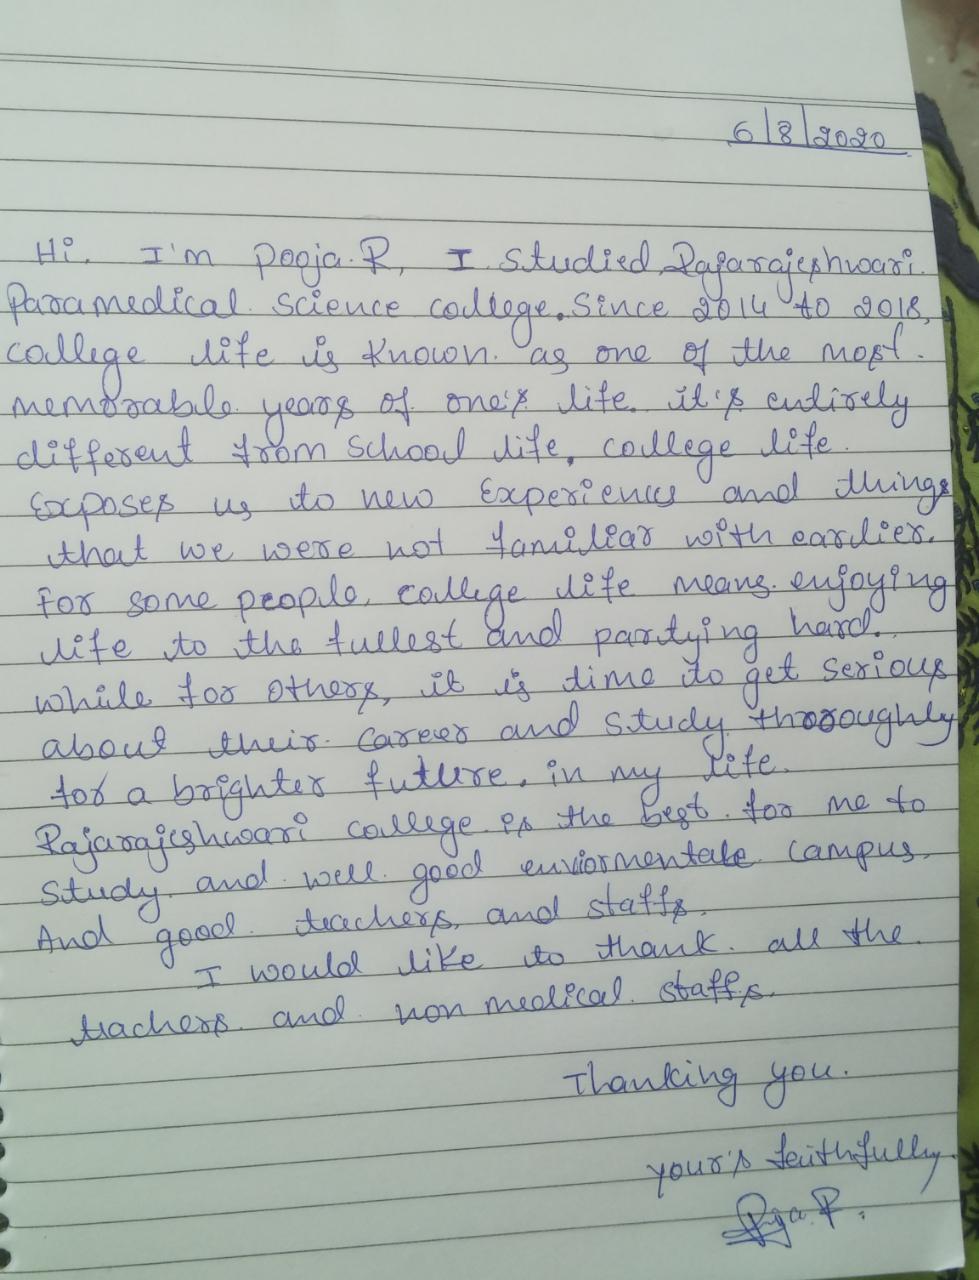 6/8/2020
Hi, I'm Pooja.R, I studied Rajarajeshwari
Paramedical science college. Since 2014 to 2018,
college life is known as one of the most
memorable years of one's life. it's entirely
different from school life, college life
exposes us to new experiences and things
that we were not familiar with earlier.
For some people, college life means enjoying
life to the fullest and partying hard.
while for others, it is time to get serious
about their career and study thoroughly
for a brighter future. in my life.
Rajarajeshwari college is the best for me to
study and well good enviormentale campus.
And good teachers and staffs.
I would like to thank all the
teachers and non medical staffs.
Thanking you.
your's faithfully